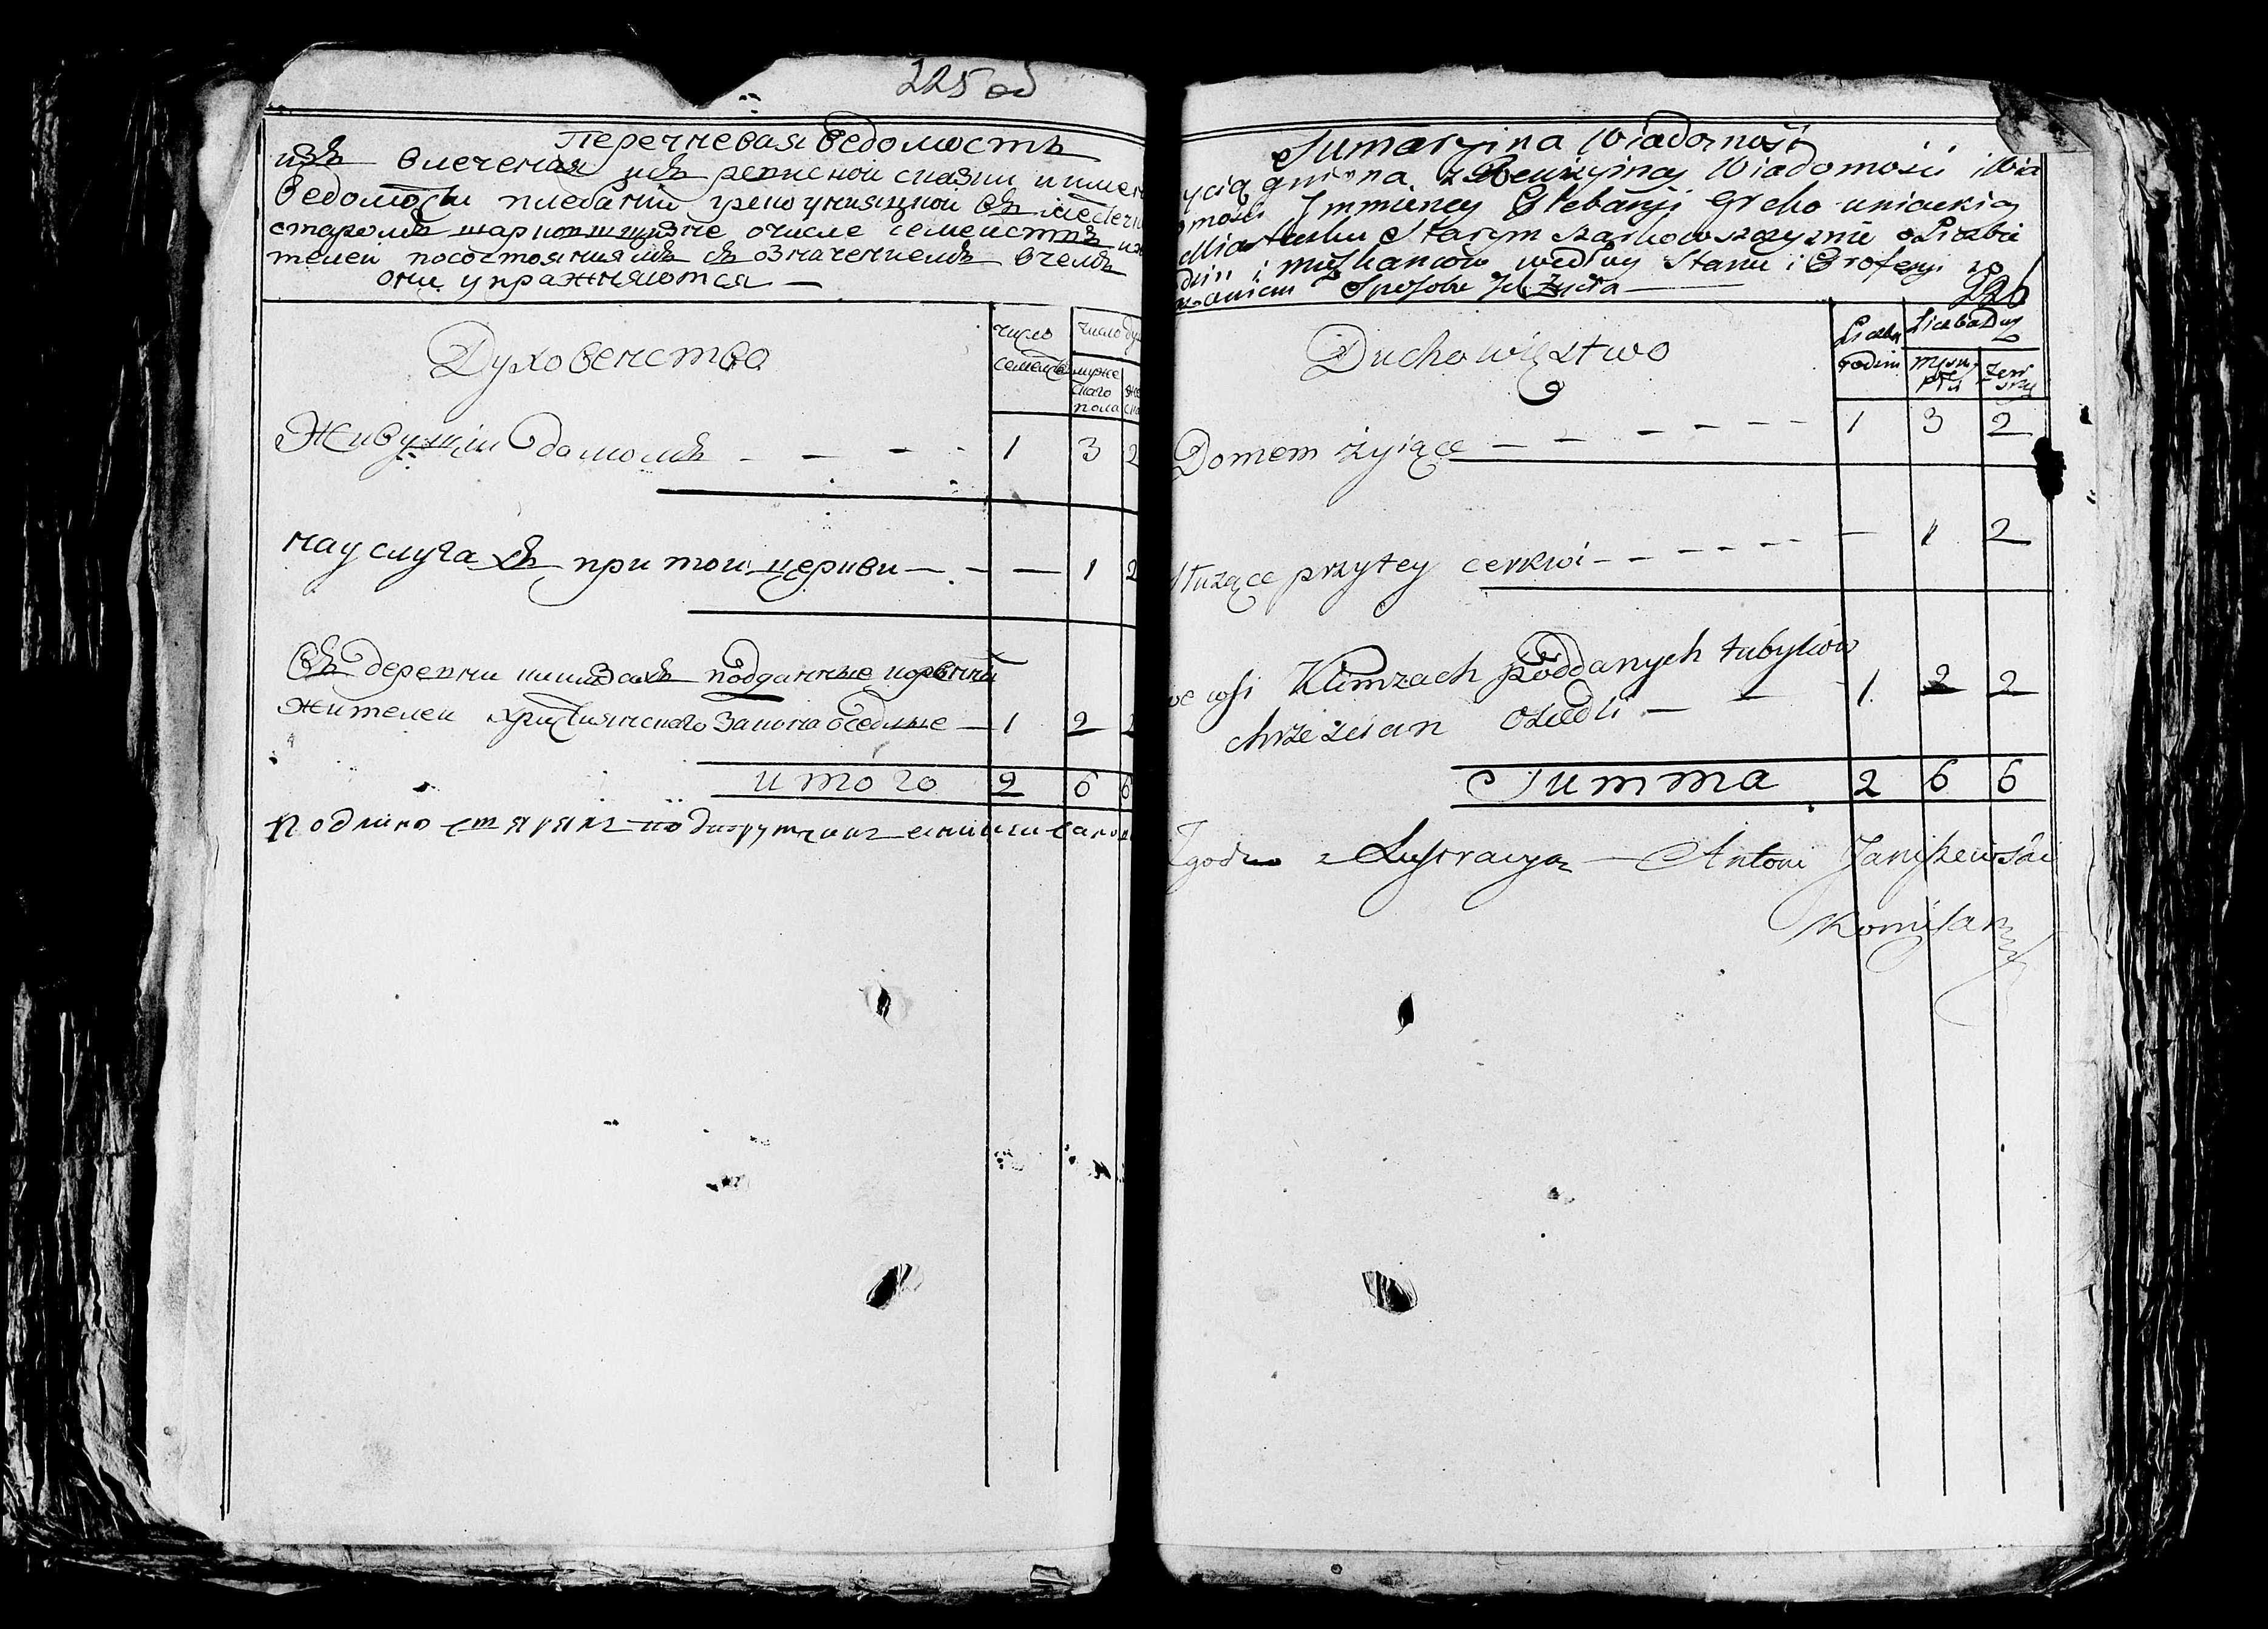 225 об
Перечневая ведомость
изъ влеченая изъ реписной сказки и имен
ведомости плебаніи греко униацкой въ местеч
старомъ шарковщизне о числе семействъ и жи
телей по состояниямъ съ означениемъ в чемъ
они упражняются —
Духовенство
число семействъ
число душ
мужескаго пола
Живущіи домомъ - - - - 1 3 2
на услугахъ при той церкви — - — 1 2
Въ деревни климзахъ подданные коренныи
жителей християнскаго закона оседлые — 1 2 2
итого 2 6 6
Подлино
Sumaryina Wiadomość
yciągniona z Rewizyiney Wiadomości i Wia
omości Immienney Plebanji Greko uniackiey
Miasteczku Starym Szarkowszczyznie o Liczbie
dzin i mięszkancow według Stanu i Profesyi z
Sposobu Ich życia
226
Duchowięstwo
Liczba rodzin
Liczba Dusz
męskey płci
żenskey
Domem żyiące — — — — — - - 1 3 2
służące przytey cerkwi - - - - - — — 1 2
we wsi Klimzach poddanych tubylców
chrześcian osiedli — — 1 2 2
Summa 2 6 6
Zgodno z Lustracyą — Antoni Janiszewski
Komisarz